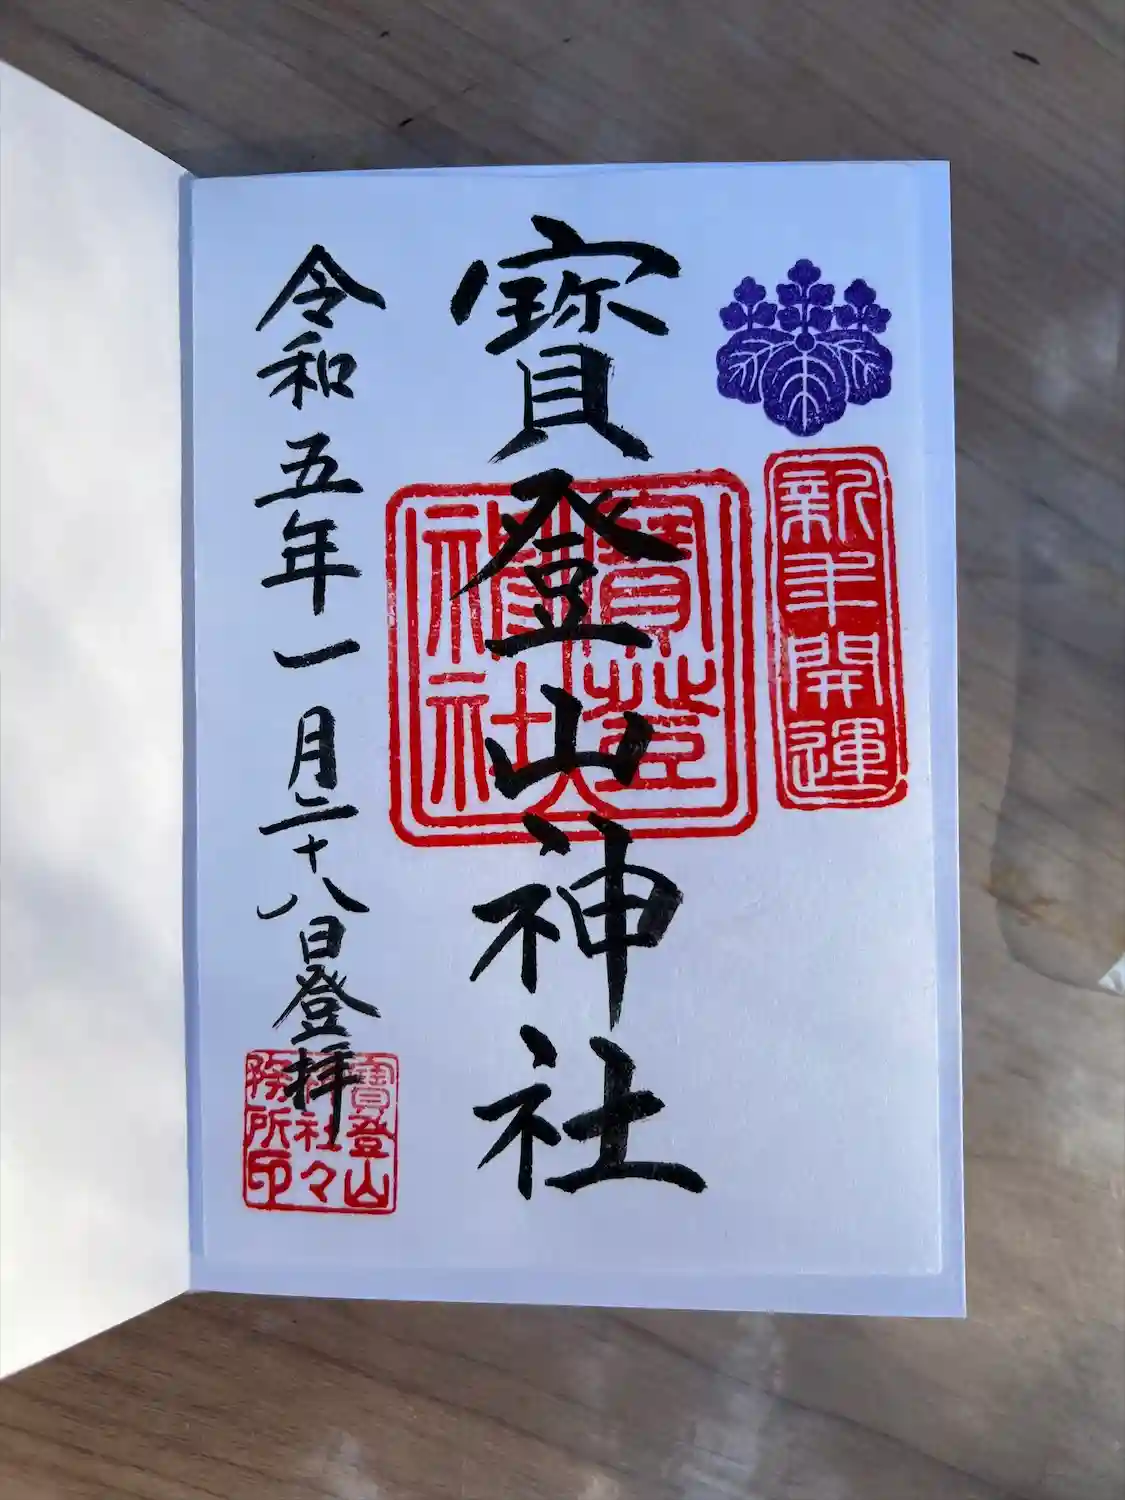 新年開運
寶登山神社
寶登山神社
令和五年一月二十八日登拝
寶登山
神社々
務所印